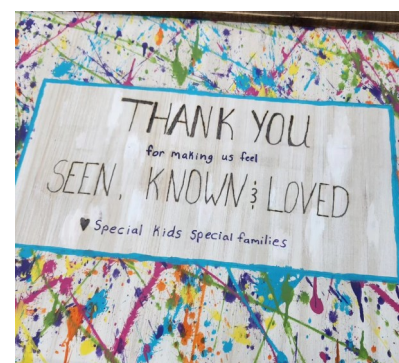 THANK YOU
for making us feel
SEEN, KNOWN & LOVED
♥ Special Kids Special families